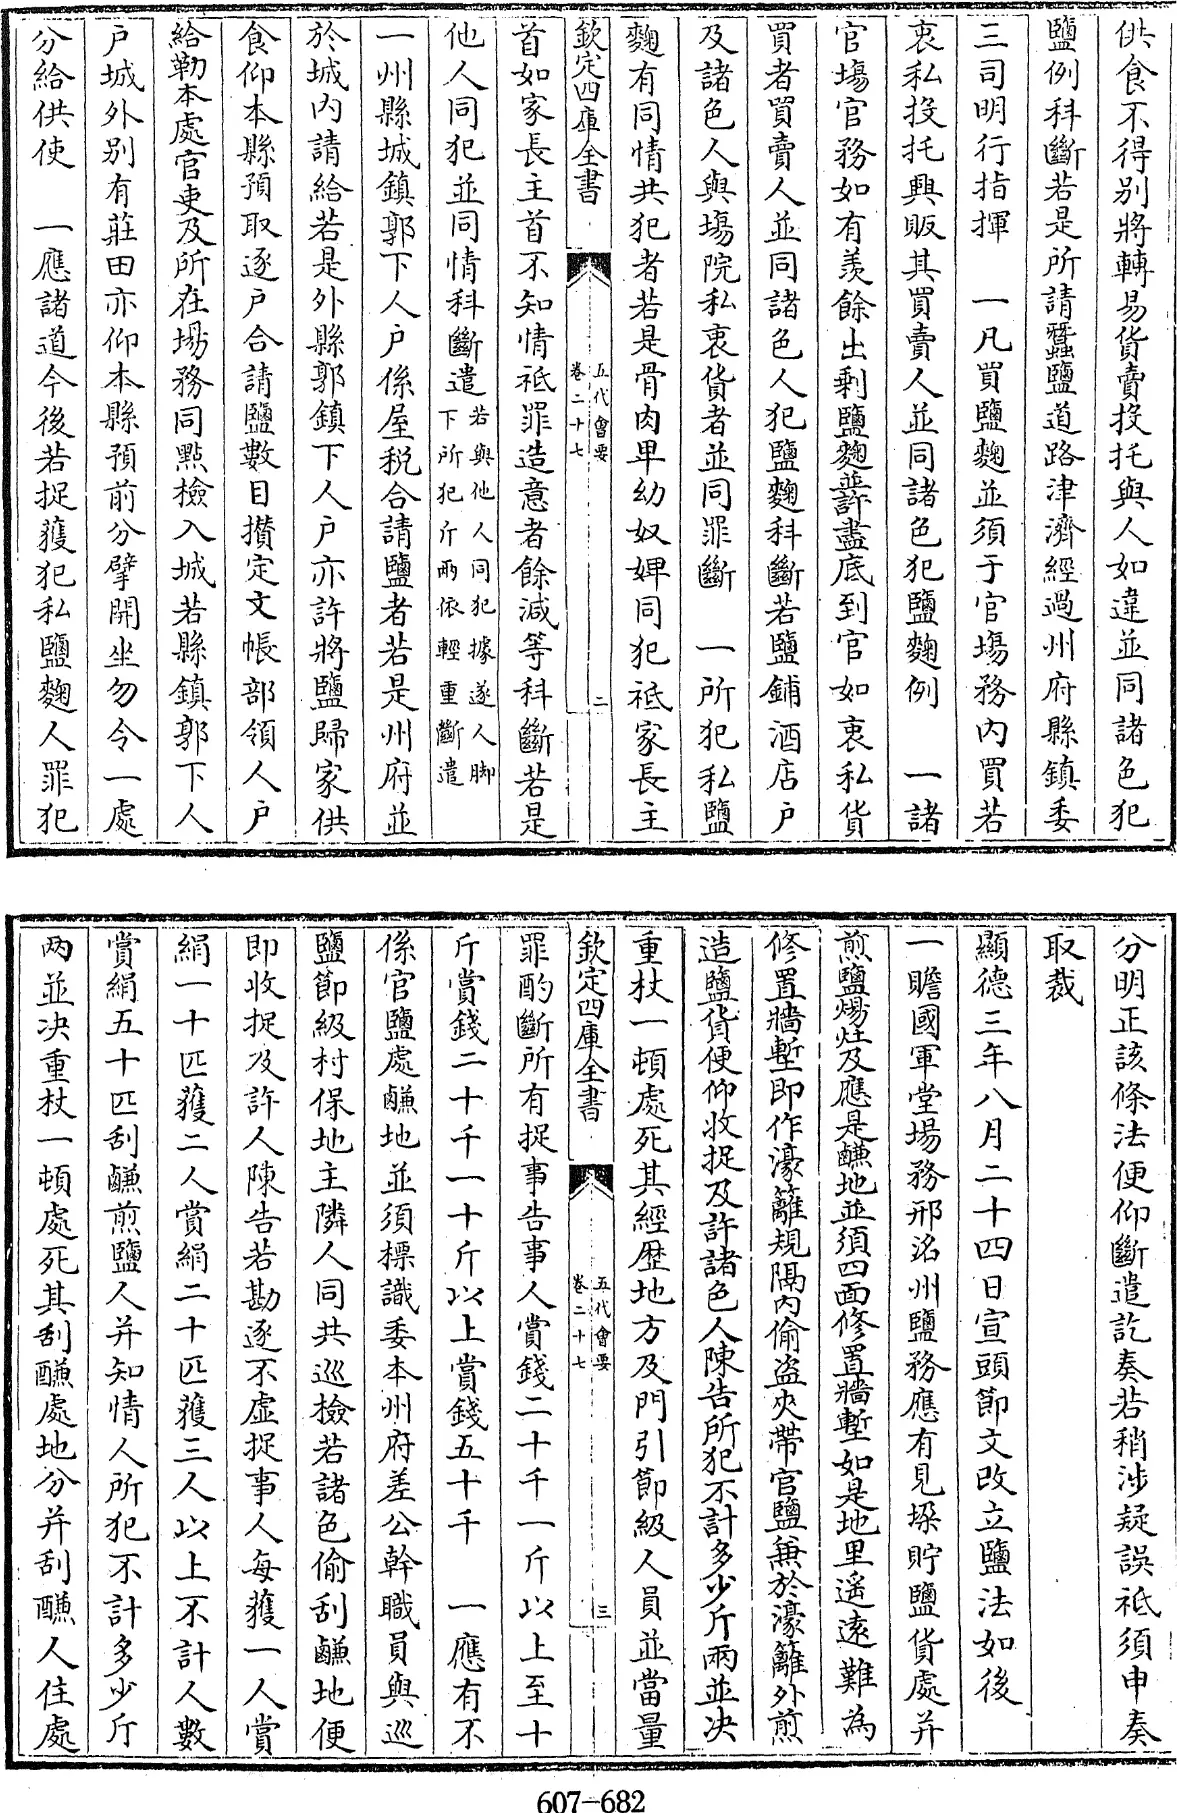 供食不得别將轉易貨賣投托與人如違並同諸色犯
鹽例科斷若是所請蠶鹽道路津濟經過州府縣鎮委
三司明行指揮　一凡買鹽麴並須于官場務内買若
衷私投托興販其買賣人並同諸色犯鹽麴例　一諸
官場官務如有羡餘出剩鹽麴並許盡底到官如衷私貨
買者買賣人並同諸色人犯鹽麴科斷若鹽鋪酒店户
及諸色人與場院私衷貨者並同罪斷　一所犯私鹽
麴有同情共犯者若是骨肉卑幼奴婢同犯祗家長主
欽定四庫全書
五代會要
卷二十七
二
首如家長主首不知情祗罪造意者餘減等科斷若是
他人同犯並同情科斷遣若與他人同犯據逐人脚
下所犯斤兩依輕重斷遣
一州縣城鎮郭下人户係屋税合請鹽者若是州府並
於城内請給若是外縣郭鎮下人户亦許將鹽歸家供
食仰本縣預取逐户合請鹽數目攢定文帳部領人户
給勒本處官吏及所在場務同點檢入城若縣鎮郭下人
户城外别有莊田亦仰本縣預前分擘開坐勿令一處
分給供使　一應諸道今後若捉獲犯私鹽麴人罪犯
分明正該條法便仰斷遣訖奏若稍涉疑誤祗須申奏
取裁
顯德三年八月二十四日宣頭節文改立鹽法如後
一贍國軍堂場務邢洺州鹽務應有見垛貯鹽貨處并
煎鹽場灶及應是鹻地並須四面修置牆塹如是地里遥遠難為
修置牆塹即作濠籬規隔内偷盗夾帶官鹽兼於濠籬外煎
造鹽貨便仰收捉及許諸色人陳告所犯不計多少斤兩並决
重杖一頓處死其經歷地方及門引節級人員並當量
欽定四庫全書
五代會要
卷二十七
三
罪酌斷所有捉事告事人賞錢二十千一斤以上至十
斤賞錢二十千一十斤以上賞錢五十千　一應有不
係官鹽處鹻地並須標識委本州府差公幹職員與巡
鹽節級村保地主隣人同共巡檢若諸色偷刮鹻地便
即收捉及許人陳告若勘逐不虚捉事人每獲一人賞
絹一十匹獲二人賞絹二十匹獲三人以上不計人數
賞絹五十匹刮鹻煎鹽人并知情人所犯不計多少斤
兩並决重杖一頓處死其刮鹻處地分并刮鹻人住處
607-682